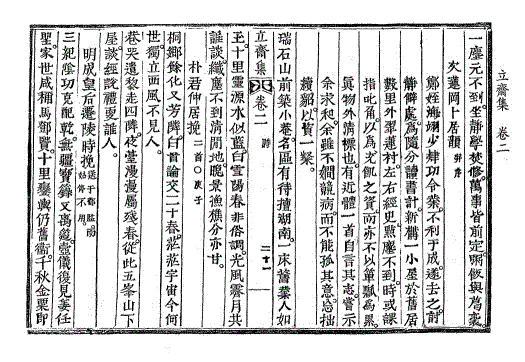 立齋集 卷二
一塵元不到坐靜學焚修萬事皆前定飮與裘
次蓮岡卜居韻 幷序
鄭姪海翊少肆功令業不利於成遂去之討
靜僻處爲隨分讀書計新構一小屋於舊居
數里外翠蓮村左右經史點塵不到時或課
指角以爲飢之資而亦不以單瓢爲累
眞物外清標也有近體一首自言其志嘗示
余求和余雖不閒聲病而不能孤其意忘拙
續貂以資一粲
瑞石山前築小菴名區有待擅湖南一床舊業人如
立齋集 卷二 詩 二十一
玉十里靈源水似藍白雪陽春非俗調光風霽月共
誰談纖塵不到清閒地晩景漁樵分亦甘
朴君仲居挽 二首○庚子
桐鄉餘化又芳隣白首論交二十春茫茫宇宙今何
世獨立西風不見人
巷哭遑遑走四隣夜臺漫漫屬殘春從此五峯山下
屋談經說禮更誰人
明成皇后遷陵時挽
三紀陰功克配乾無疆寶籙又壼儀復見姜任
聖家世咸稱馬鄧賢十里鑾輿仍舊衛千秋金粟卽